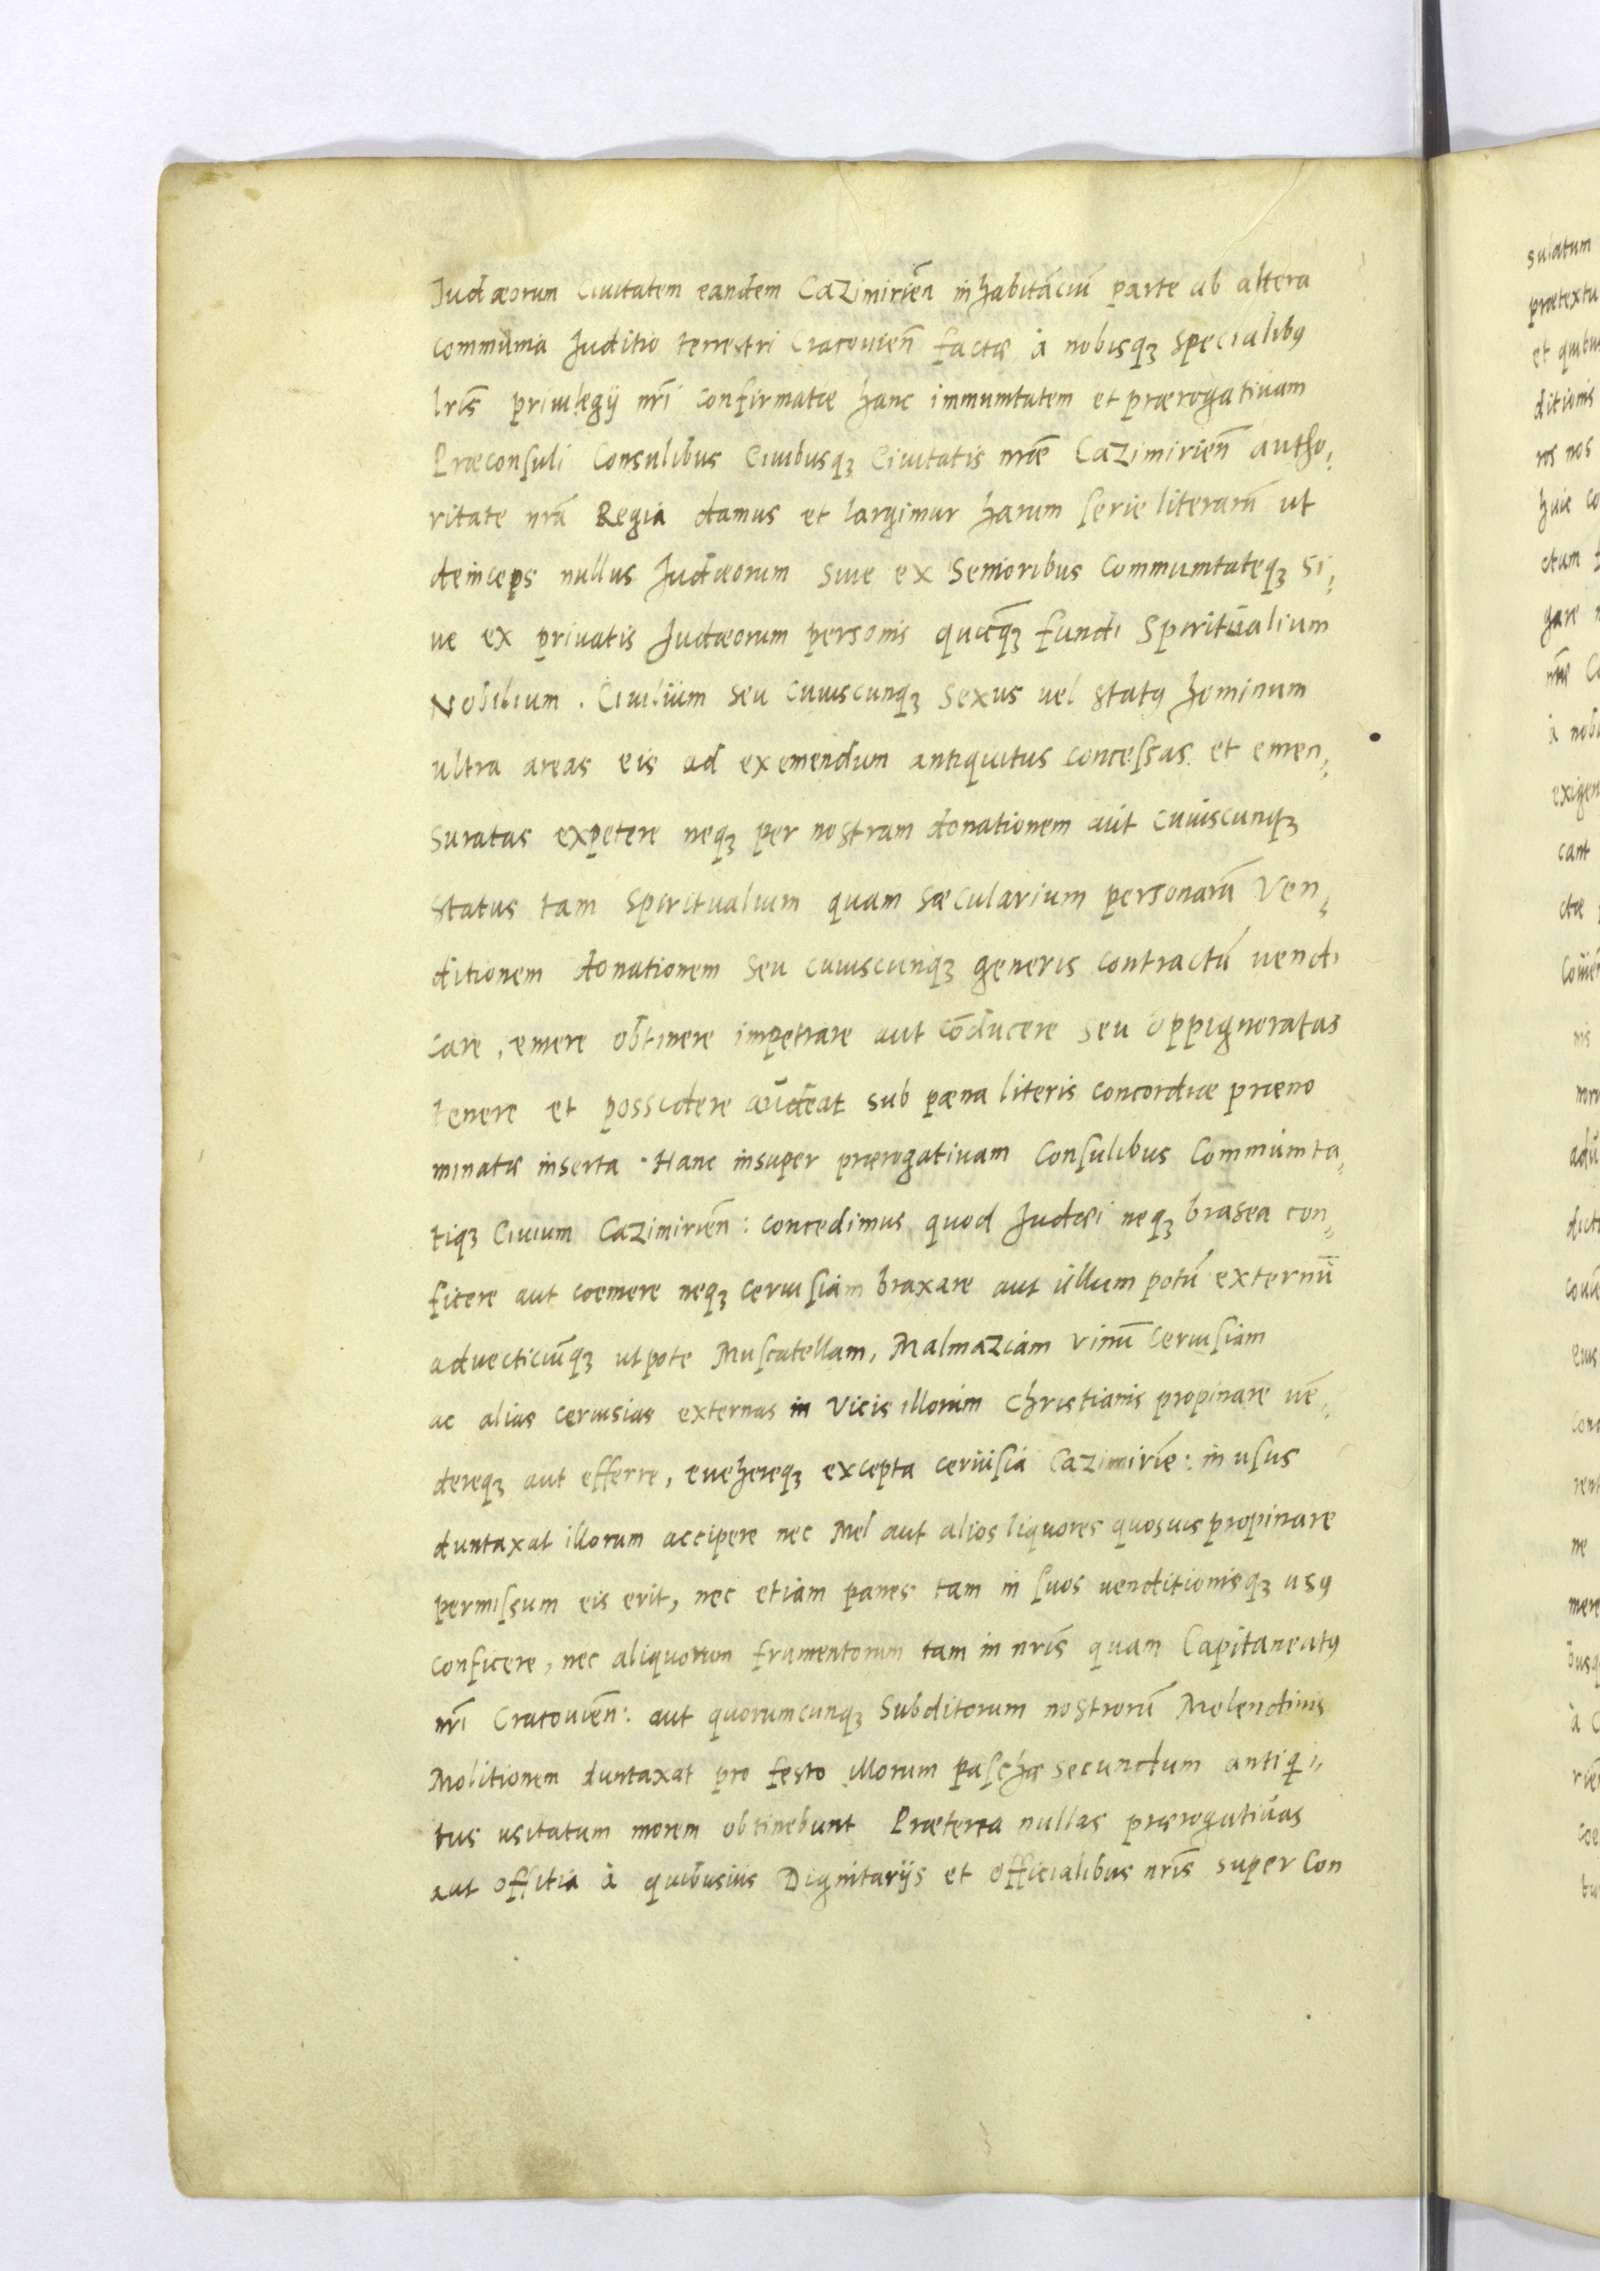 Iudæorum Ciuitatem eandem Cazimirien̄ inhabitāciū parte ab altera
communia Iuditio terrestri Cracouien̄ factæ à nobisqꝫ specialibꝰ
lr̄is priuilegij nr̄i confirmatæ hanc immunitatem et prærogatiuam
Præconsuli Consulibus Ciuibusqꝫ Ciuitatis nr̄æ Cazimirien̄ autho,
ritate nr̄a Regia damus et largimur harum serie literarū ut
deinceps nullus Iudæorum siue ex Senioribus Communitateqꝫ si,
ue ex priuatis Iudæorum personis quæqꝫ̄ fundi Spiritualium
Nobilium . Ciuilium seu cuiuscunqꝫ sexus uel statꝰ hominum
ultra areas eis ad exemendum antiquitus concessas et emen,
suratas expetere neqꝫ per nostram donationem aut cuiuscunqꝫ
status tam spiritualium quam sæcularium personarū ven,
ditionem donationem seu cuiuscunqꝫ generis contractū uendi
care, emere obtinere impetrare aut cōducere seu oppigneratas
tenere et possidere audeat sub pæna literis concordiæ præno
minatæ inserta . Hanc insuper prærogatiuam Consulibus Communita,
tiqꝫ Ciuium Cazimirien̄: concedimus quod Iudæi neqꝫ brasea con,
ficere aut coemere neqꝫ ceruisiam braxare aut ullum potū externū
aduecticiūqꝫ utpote Muscatellam, Malmaziam vinū ceruisiam
ac alias ceruisias externas in vicis illorum Christianis propinare uē,
dereqꝫ aut efferre, euehereqꝫ excepta ceruisia Cazimiriē: in usus
duntaxat illorum accipere nec Mel aut alios liquores quosuis propinare
permissum eis erit, nec etiam panes tam in suos uenditionisqꝫ usꝰ
conficere, nec aliquorum frumentorum tam in nr̄is quam Capitaneatꝰ
nr̄i Cracouien̄: aut quorumcunqꝫ subditorum nostrorū Molendinis
Molitionem duntaxat pro festo illorum paschæ secundum antiq̄i,
tus usitatum morem obtinebunt Præterea nullas prærogatiuas
aut offitia à quibusuis Dignitarijs et officialibus nr̄is super Con
sulatum
prætextu
ditionis
ros nos